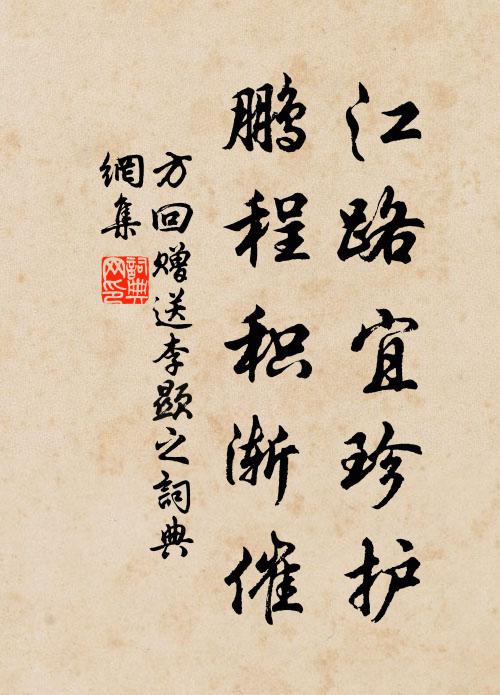 江路宜珍护
鹏程积渐催
方回赠送李显之詞典
網集
詞典
网印